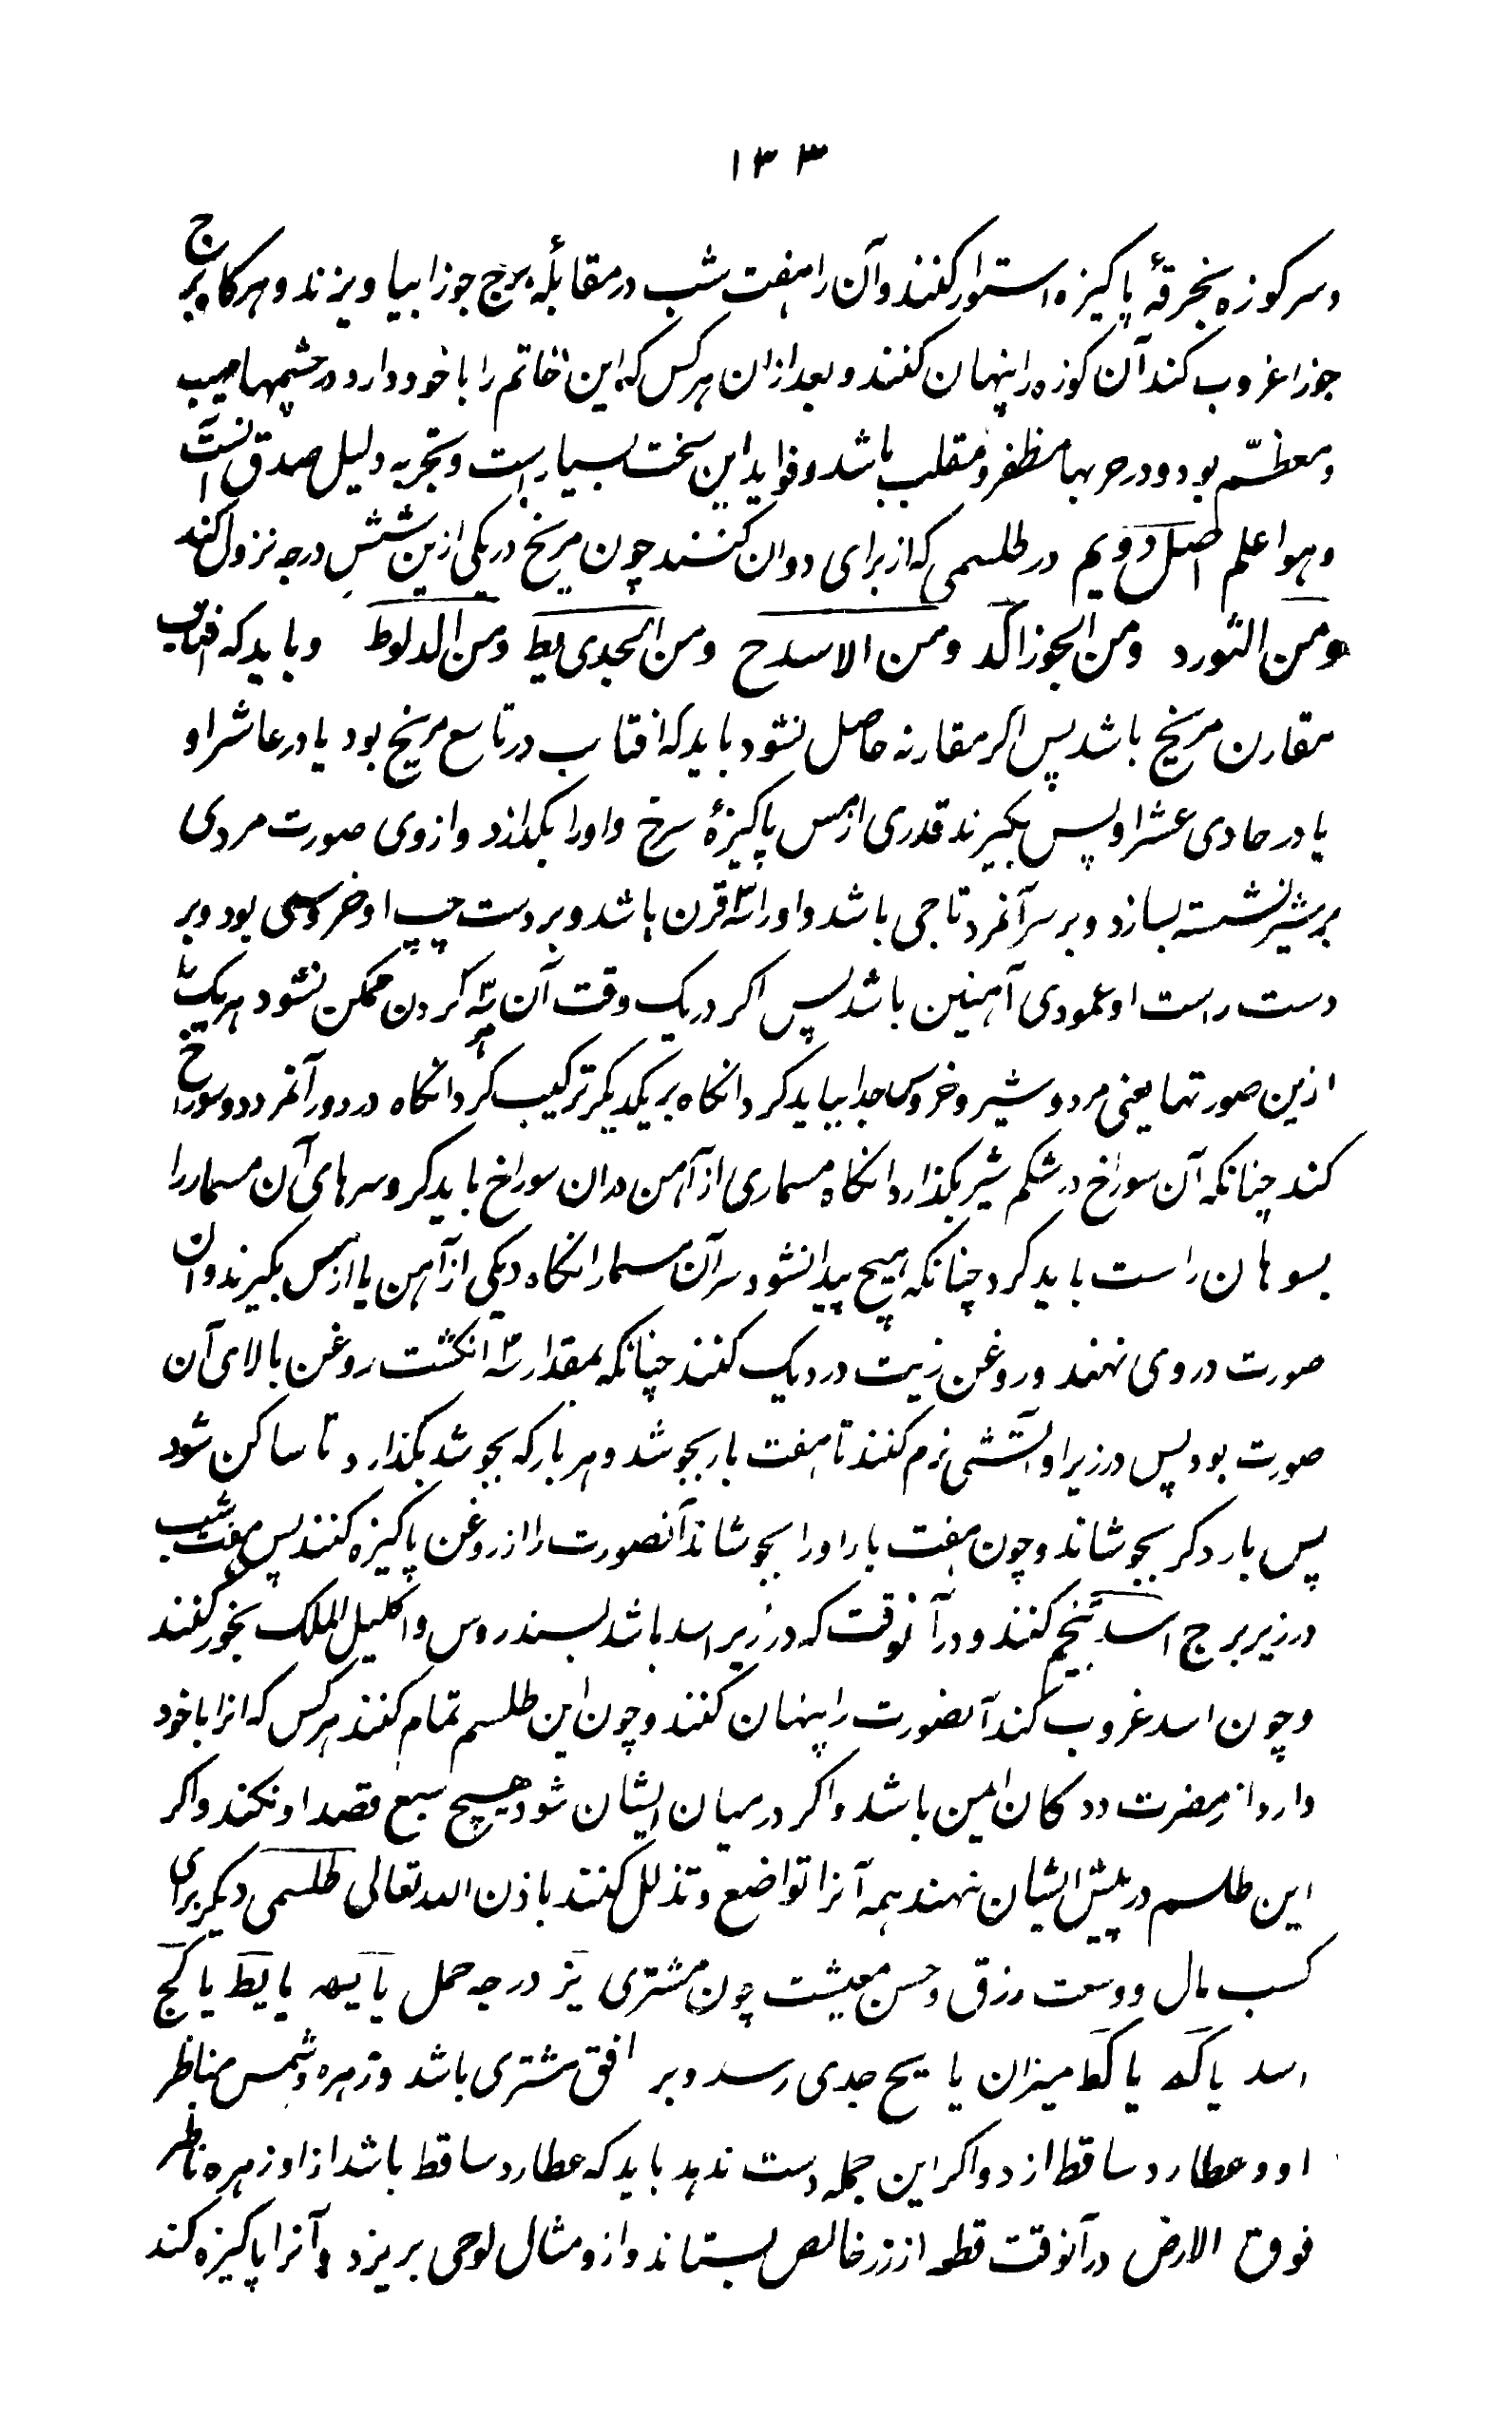 ۱۳۳
وسر کوزه بخرقهٔ پاکیزه استوار کنند وآن را هفت شب در مقابلهٔ برج جوزا بیاویزند وهرکاه برج
جوزا غروب کند آن کوزه را پنهان کنند وبعد ازان هرکس که این خاتم را با خود دارد در چشمها مهیب
ومعظّم بود ودر حربها مظفر و باشد وفواید این سخت بسیار است وتجربه دلیل صدق آنست
وهو اعلم اصل دویم در طلسمی که از برای ددان کنند چون مریخ در یکی ازین شش درجه نزول کند
ومن الثور د ومن الجوزا کد ومن الاسد ح ومن الجدی یط ومن الدلو ط وباید که افتاب
مقارن مریخ باشد پس اکر مقارنه حاصل نشود باید که افتاب در تاسع مریخ بود یا در عاشر او
یا در حادی عشر او پس بکیرند قدری از مس پاکیزهٔ سرخ واورا بکدازد وازوی صورت مردی
بر شیر نشسته بسازد وبر سر آنمرد تاجی باشد واورا سه قرن باشد وبر دست چپ او خروسی بود وبر
دست راست او عمودی آهنین باشد پس اکر در یک وقت آن هر سه کردن ممکن نشود هر یک را
ازین صورتها یعنی مرد وشیر وخروس جدا بباید کرد وانکاه بر یکدیکر ترکیب کرد انکاه در دور آنمرد دو سوراخ
کند چنانکه آن سوراخ در شکم شیر بکذارد انکاه مسماری از آهن دران سوراخ باید کرد وسرهای آن مسمار را
بسوهان راست باید کرد چنانکه هیچ پیدا نشود سر آن مسمار انکاه دیکی از آهن یا از مس بکیرند وان
صورت در وی نهند وروغن زیت در دیک کنند چنانکه بمقدار سه انکشت روغن بالای آن
صورت بود پس در زیر او آتشی نرم کنند تا هفت بار بجوشد وهر بار که بجوشد بکذارد تا ساکن شود
پس بار دکر بجوشاند وچون هفت بار اورا بجوشاند آنصورت را از روغن پاکیزه کنند پس هفت شب
در زیر برج اسد تنجیم کنند ودر آنوقت که در زیر اسد باشد بسندروس واکلیل الملک بخور کنند
وچون اسد غروب کند آنصورت را پنهان کنند وچون این طلسم تمام کنند هرکس که انرا با خود
دارد از مضرت ددکان ایمن باشد واکر در میان ایشان شود هیچ سبع قصد او نکند واکر
این طلسم در پیش ایشان نهند همه آنرا تواضع وتذلل کنند باذن الله تعالی طلسمی دیکر برای
کسب مال ووسعت رزق وحسن معیشت چون مشتری یز درجه حمل یا یه یا یط یا کج
اسد یا که یا کط میزان یا یح جدی رسد وبر افق مشتری باشد وزهره وشمس مناظر
او وعطارد ساقط از دواکر این جمله دست ندهد باید که عطارد ساقط باشد ازا وزهره ناظر
فوق الارض در آنوقت قطعه از زر خالص بستاند وازو مثال لوحی بریزد وآنرا پاکیزه کند